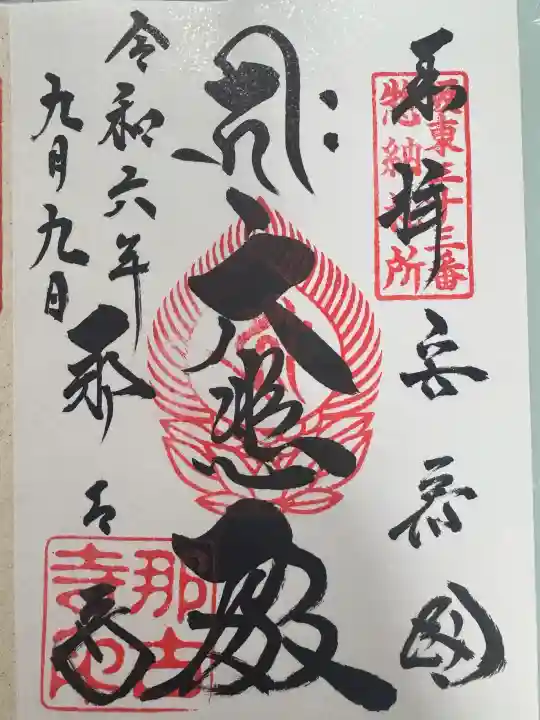 奉拝 安房国
坂東三十三番
惣納札所
大悲殿
令和六年
九月九日
那古寺